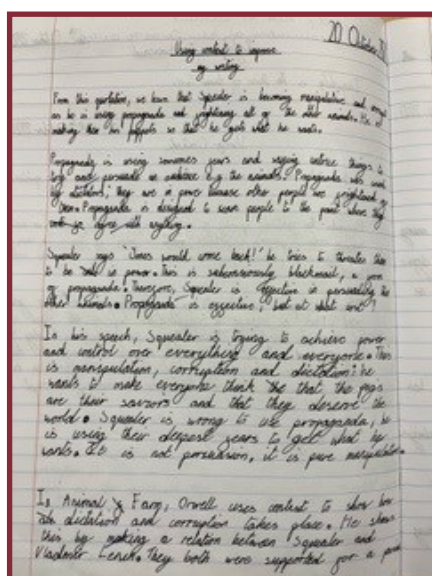 20 October
Using context to improve
my writing
From this quotation, we learn that Squealer is becoming manipulative and
as he is using propaganda and frightening all of the other animals. He is
making them his puppets so that he gets what he wants.
Propaganda is using someones fears and saying untrue things to
and persuade an audience e.g the animals. Propaganda was used
by dictators; they are in power because other people are frightened of
them. Propaganda is designed to scare people to the point where they
agree with anything.
Squealer says "Jones would come back!" he tries to threaten them
to be in power. This is subconsciously blackmail, a form
of propaganda. Therefore, Squealer is effective in persuading the
other animals. Propaganda is effective, but at what cost?
In his speech, Squealer is trying to achieve power
and control over everything and everyone. This
is manipulation, corruption and dictation: he
wants to make everyone thank the that the pigs
are their saviors and that they deserve the
world. Squealer is wrong to use propaganda, he
is using their deepest fears to get what he
wants. It is not persuasion, it is pure manipulation.
In Animal Farm, Orwell uses context to show how
dictation and corruption takes place. He shows
this by making a relation between Squealer and
Vladimir Lenin. They both were supported for a